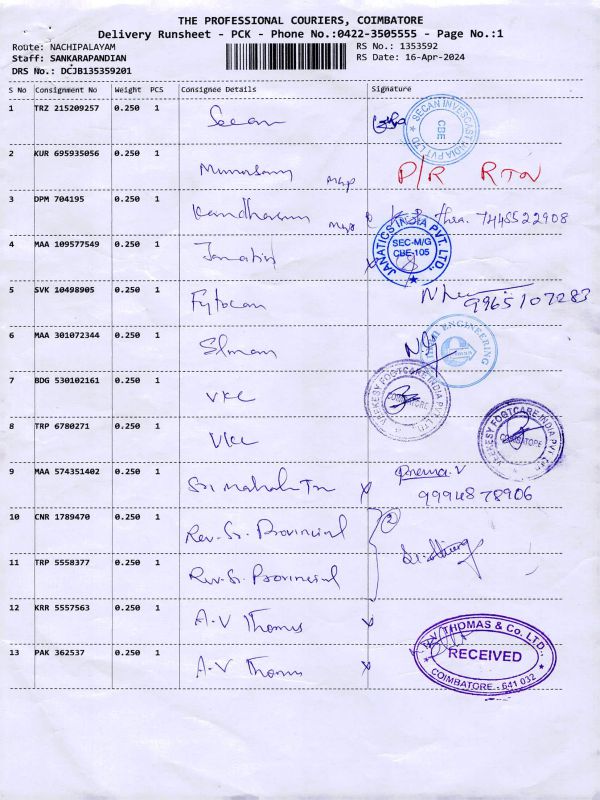 THE PROFESSIONAL COURIERS, COIMBATORE
Delivery Runsheet - PCK - Phone No.:0422-3505555 - Page No.:1
Route: NACHIPALAYAM RS No.: 1353592
Staff: SANKARAPANDIAN RS Date: 16-Apr-2024
DRS No.: DCJB135359201
S No Consignment No Weight PCS Consignee Details Signature
1 TRZ 215209257 0.250 1 Secan
SECAN INVESCAST INDIA PVT LTD CBE
2 KUR 695935056 0.250 1 P/R RTON
3 DPM 704195 0.250 1 7445522908
4 MAA 109577549 0.250 1
JANATICS INDIA PVT. LTD., SEC-M/G CBE-105
5 SVK 10498905 0.250 1 Fytocan 9965107283
6 MAA 301072344 0.250 1
ENGINEERING
7 BDG 530102161 0.250 1 VKC
VEEKESY FOOTCARE INDIA PVT LTD COIMBATORE
8 TRP 6780271 0.250 1 VKC
VEEKESY FOOTCARE INDIA PVT LTD COIMBATORE
9 MAA 574351402 0.250 1 Sri Prema.V
9994878906
10 CNR 1789470 0.250 1 Rev. Sr. Provincial 2
11 TRP 5558377 0.250 1 Rev. Sr. Provincial
12 KRR 5557563 0.250 1 A.V Thomas x
13 PAK 362537 0.250 1 A.V Thomas x
A.V. THOMAS & Co. LTD., RECEIVED COIMBATORE - 641 032